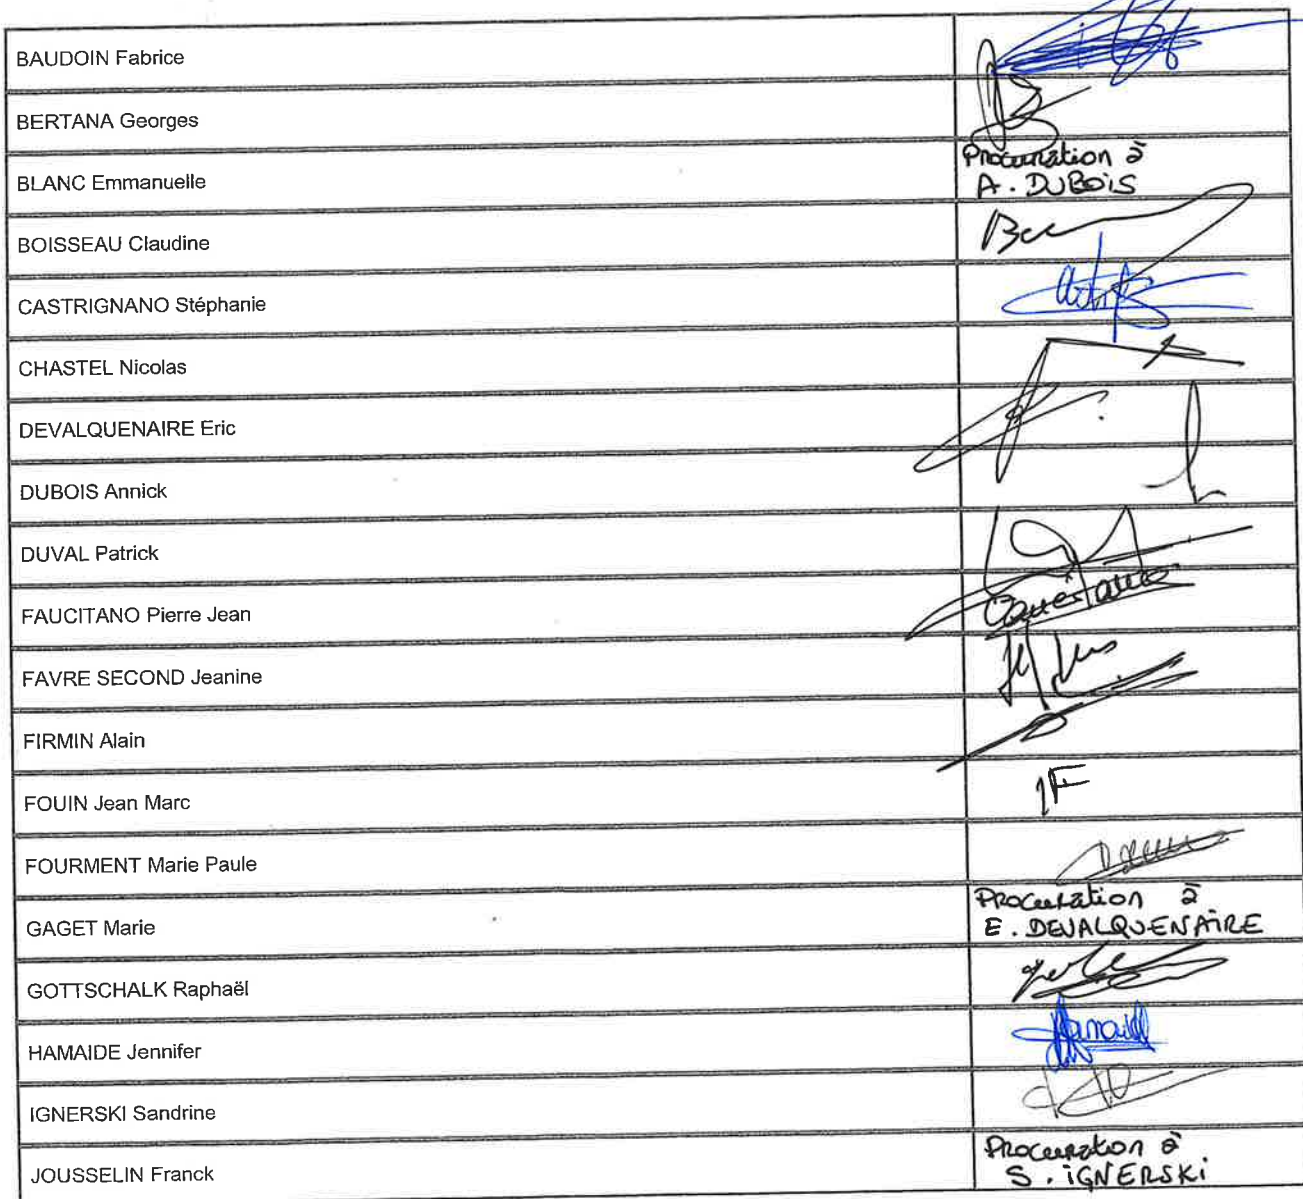 BAUDOIN Fabrice
BERTANA Georges
BLANC Emmanuelle
Procuration à
A. DUBOIS
BOISSEAU Claudine
CASTRIGNANO Stéphanie
CHASTEL Nicolas
DEVALQUENAIRE Eric
DUBOIS Annick
DUVAL Patrick
FAUCITANO Pierre Jean
FAVRE SECOND Jeanine
FIRMIN Alain
FOUIN Jean Marc
JF
FOURMENT Marie Paule
GAGET Marie
Procuration à
E. DEVALQUENAIRE
GOTTSCHALK Raphaël
HAMAIDE Jennifer
IGNERSKI Sandrine
JOUSSELIN Franck
Procuration à
S. IGNERSKI